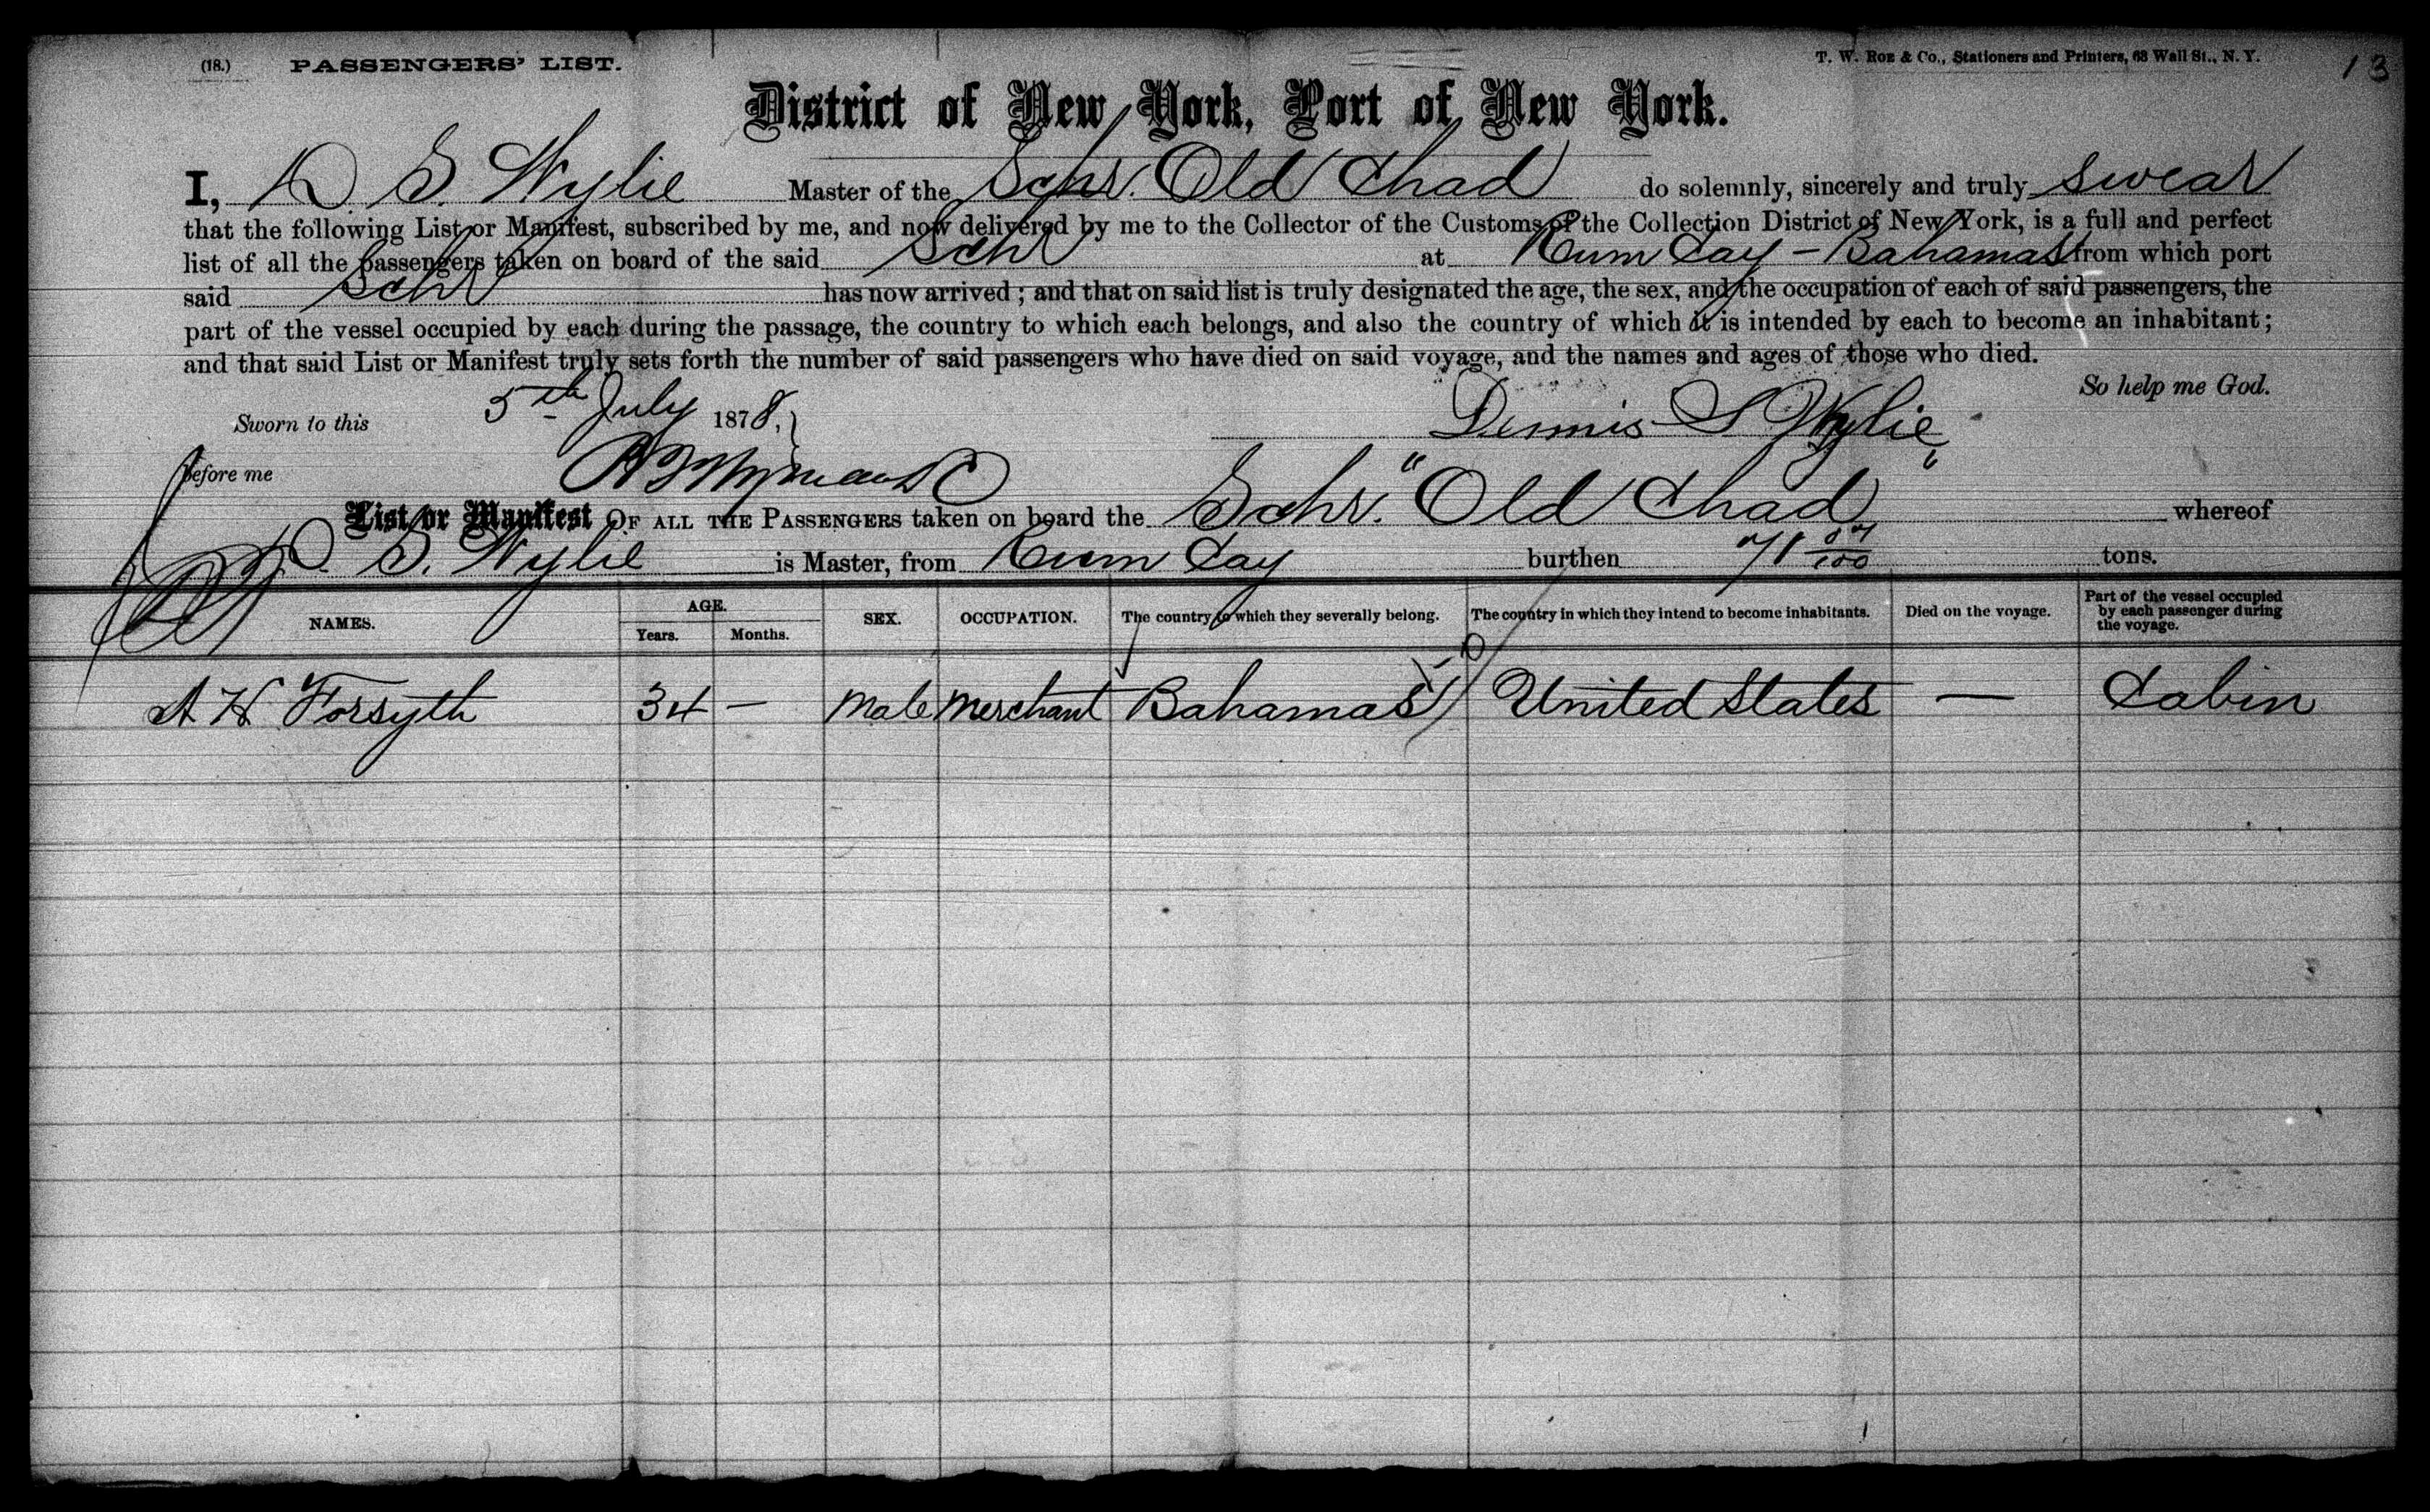 (18.) PASSENGERS' LIST.
T. W. Roe & Co., Stationers and Printers, 63 Wall St., N. Y.
13
District of New York, Port of New York.
I, D. S. Wylie Master of the Schr. Old Chad do solemnly, sincerely and truly swear
that the following List or Manifest, subscribed by me, and now delivered by me to the Collector of the Customs of the Collection District of New York, is a full and perfect
list of all the passengers taken on board of the said Schr at Rum Cay - Bahamas from which port
said Schr has now arrived; and that on said list is truly designated the age, the sex, and the occupation of each of said passengers, the
part of the vessel occupied by each during the passage, the country to which each belongs, and also the country of which it is intended by each to become an inhabitant;
and that said List or Manifest truly sets forth the number of said passengers who have died on said voyage, and the names and ages of those who died.
So help me God.
Sworn to this 5th July 1878,
Dennis S Wylie
Before me
List or Manifest OF ALL THE PASSENGERS taken on board the Schr. "Old Chad" whereof
D. S. Wylie is Master, from Rum Cay burthen 71 tons.
NAMES. AGE. Years. Months. SEX. OCCUPATION. The country to which they severally belong. The country in which they intend to become inhabitants. Died on the voyage. Part of the vessel occupied by each passenger during the voyage.
A H Forsyth 34 — Male Merchant Bahamas United States — Cabin